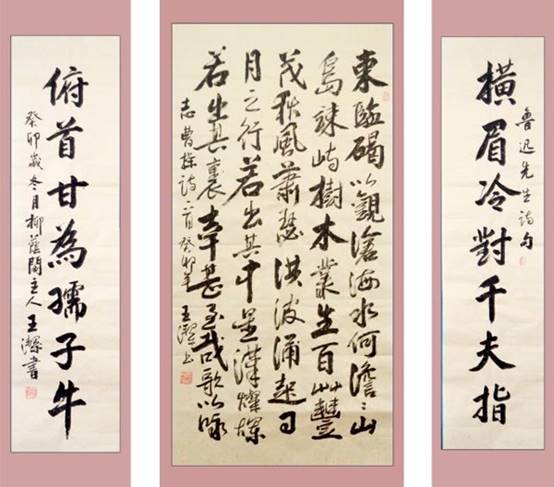 橫眉冷對千夫指
魯迅先生詩句
東臨碣以觀滄海水何澹〻山
島竦峙樹木叢生百艸豐
茂秋風蕭瑟洪波涌起日
月之行若出其中星漢燦爛
若出其裏幸甚至哉歌以詠
志曹操詩一首癸卯年王潔
俯首甘為孺子牛
癸卯歲冬月柳蔭閣主人王潔書